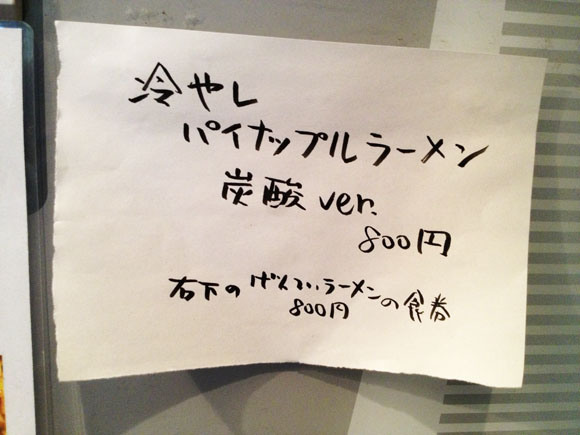 冷やし
パイナップルラーメン
炭酸 ver.
800円
右下のげんていラーメンの食券
800円